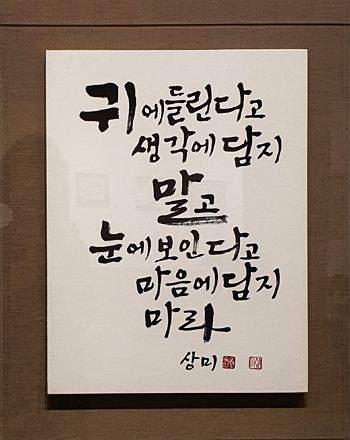 귀에들린다고
생각에 담지
말고
눈에보인다고
마음에담지
마라
상미